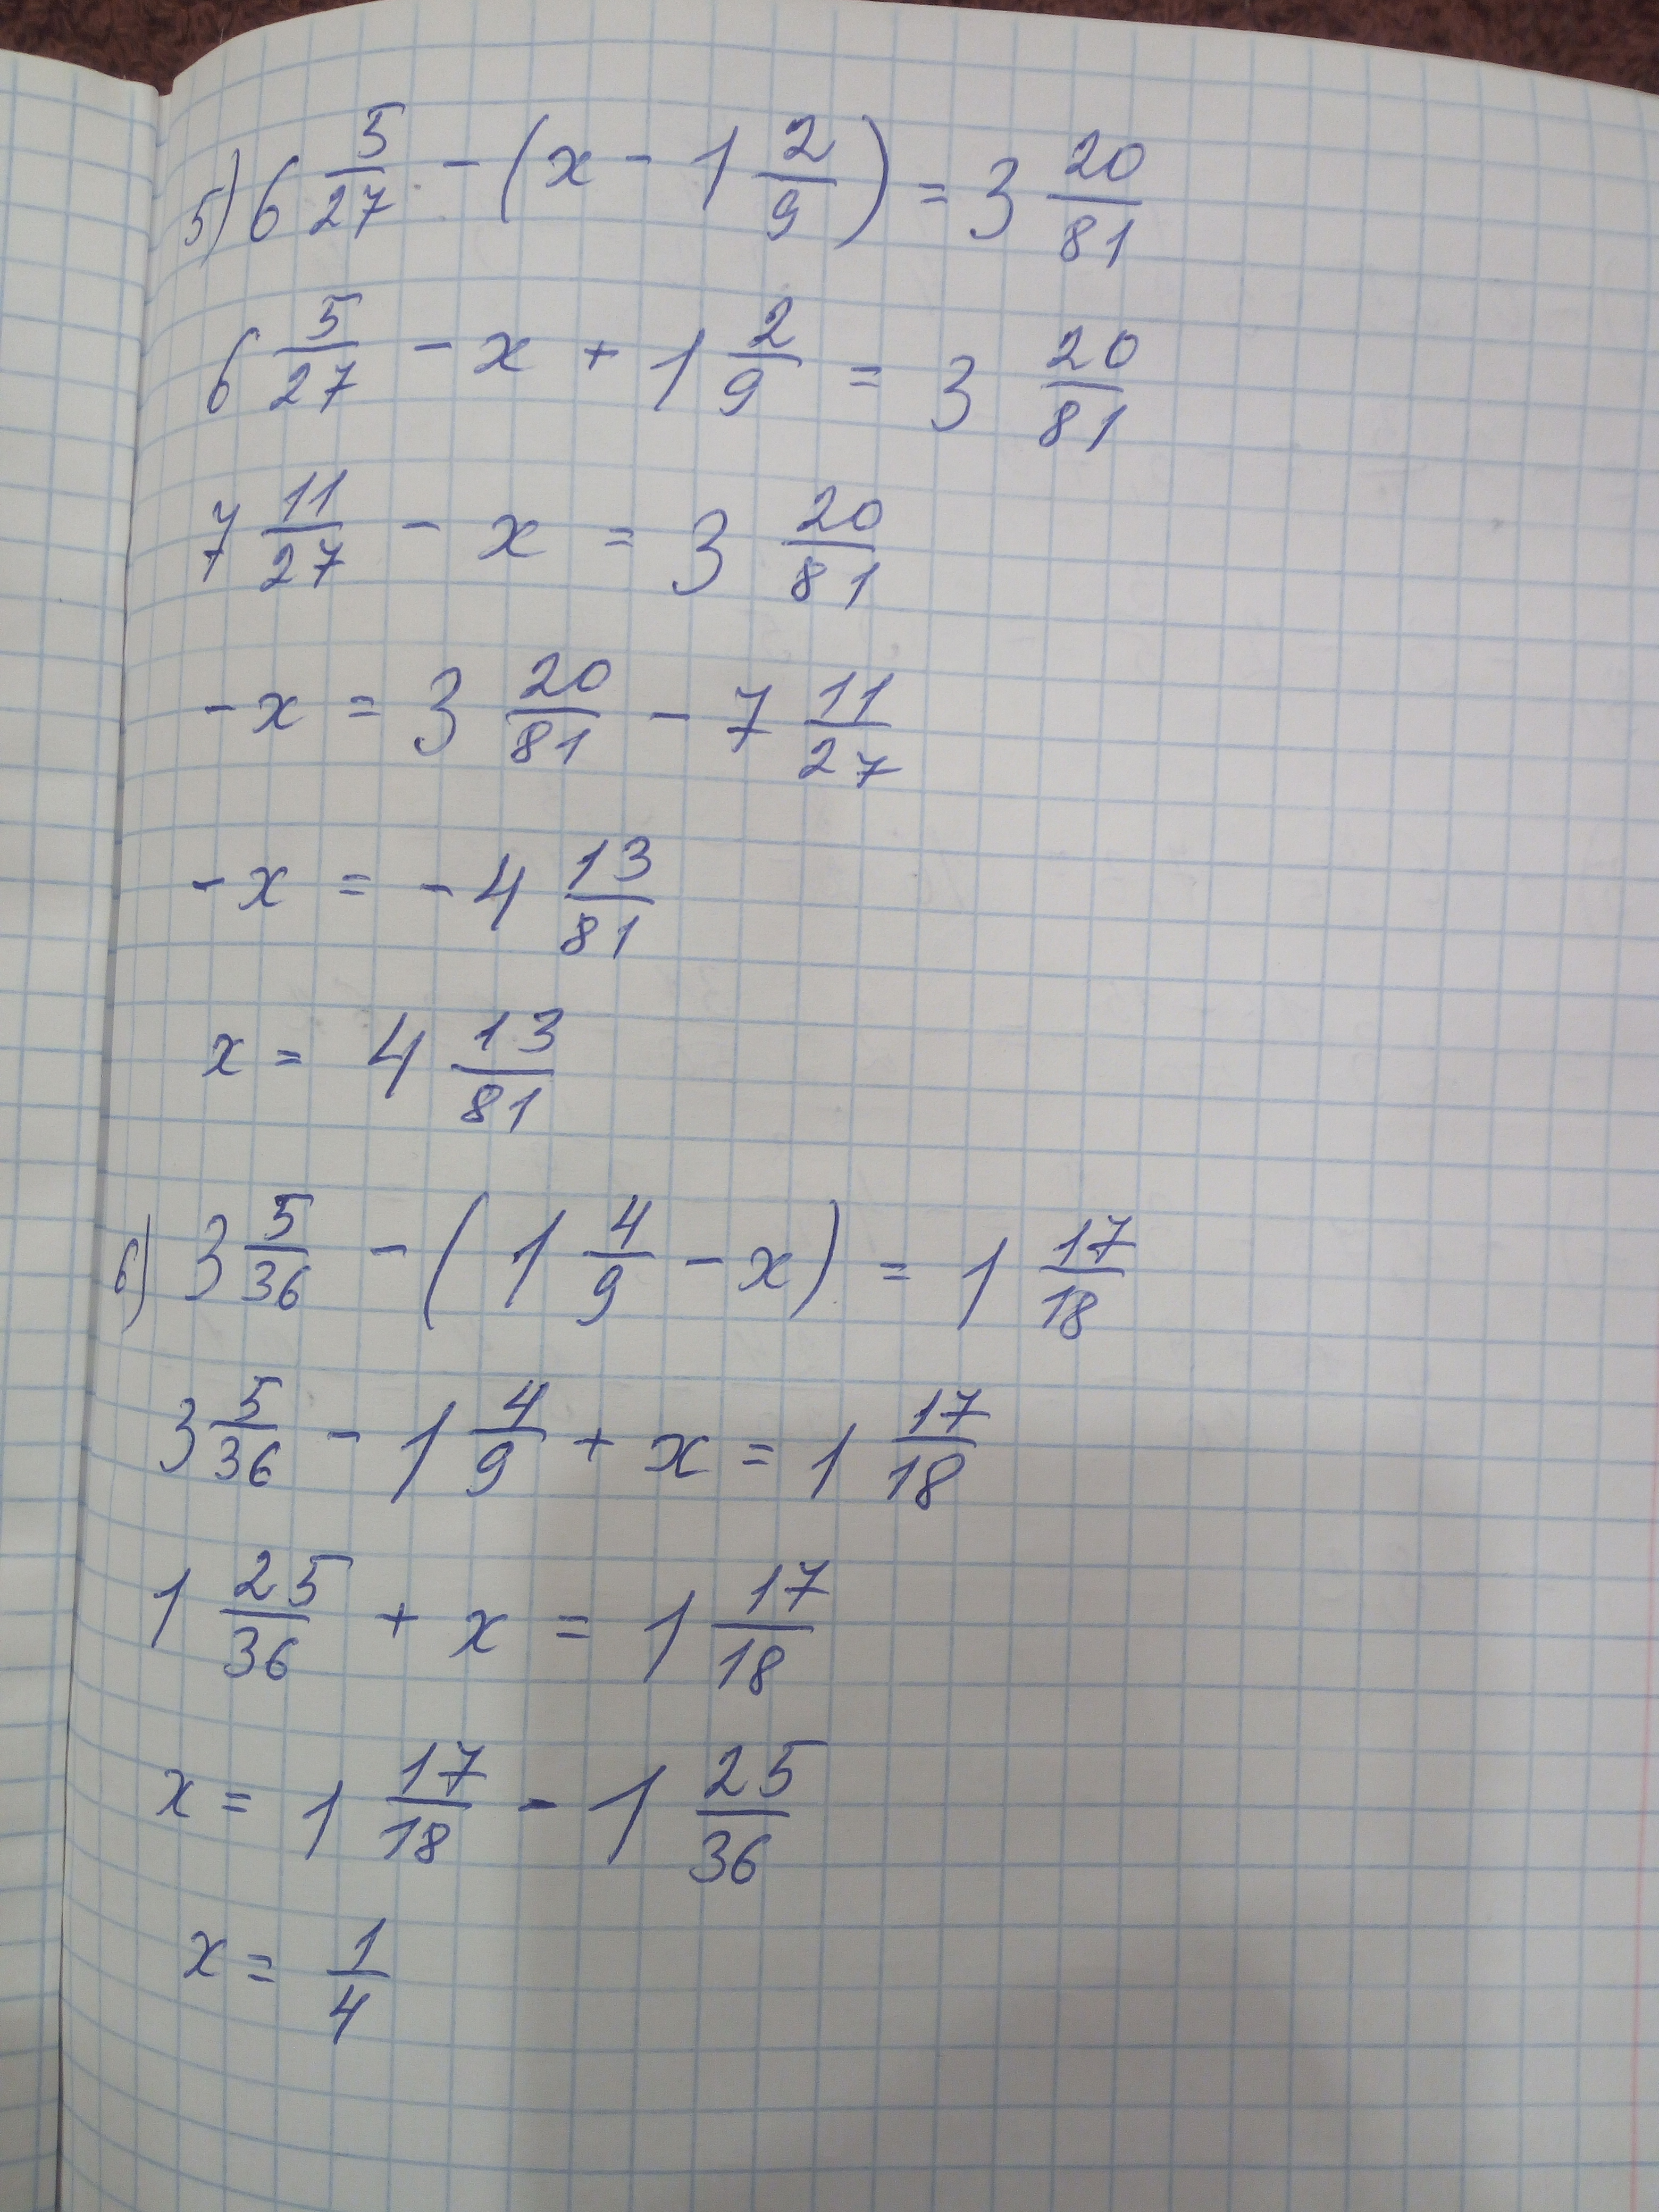 5) 6 5/27 - (x - 1 2/9) = 3 20/81
6 5/27 - x + 1 2/9 = 3 20/81
7 11/27 - x = 3 20/81
-x = 3 20/81 - 7 11/27
-x = -4 13/81
x = 4 13/81
6) 3 5/36 - (1 4/9 - x) = 1 17/18
3 5/36 - 1 4/9 + x = 1 17/18
1 25/36 + x = 1 17/18
x = 1 17/18 - 1 25/36
x = 1/4